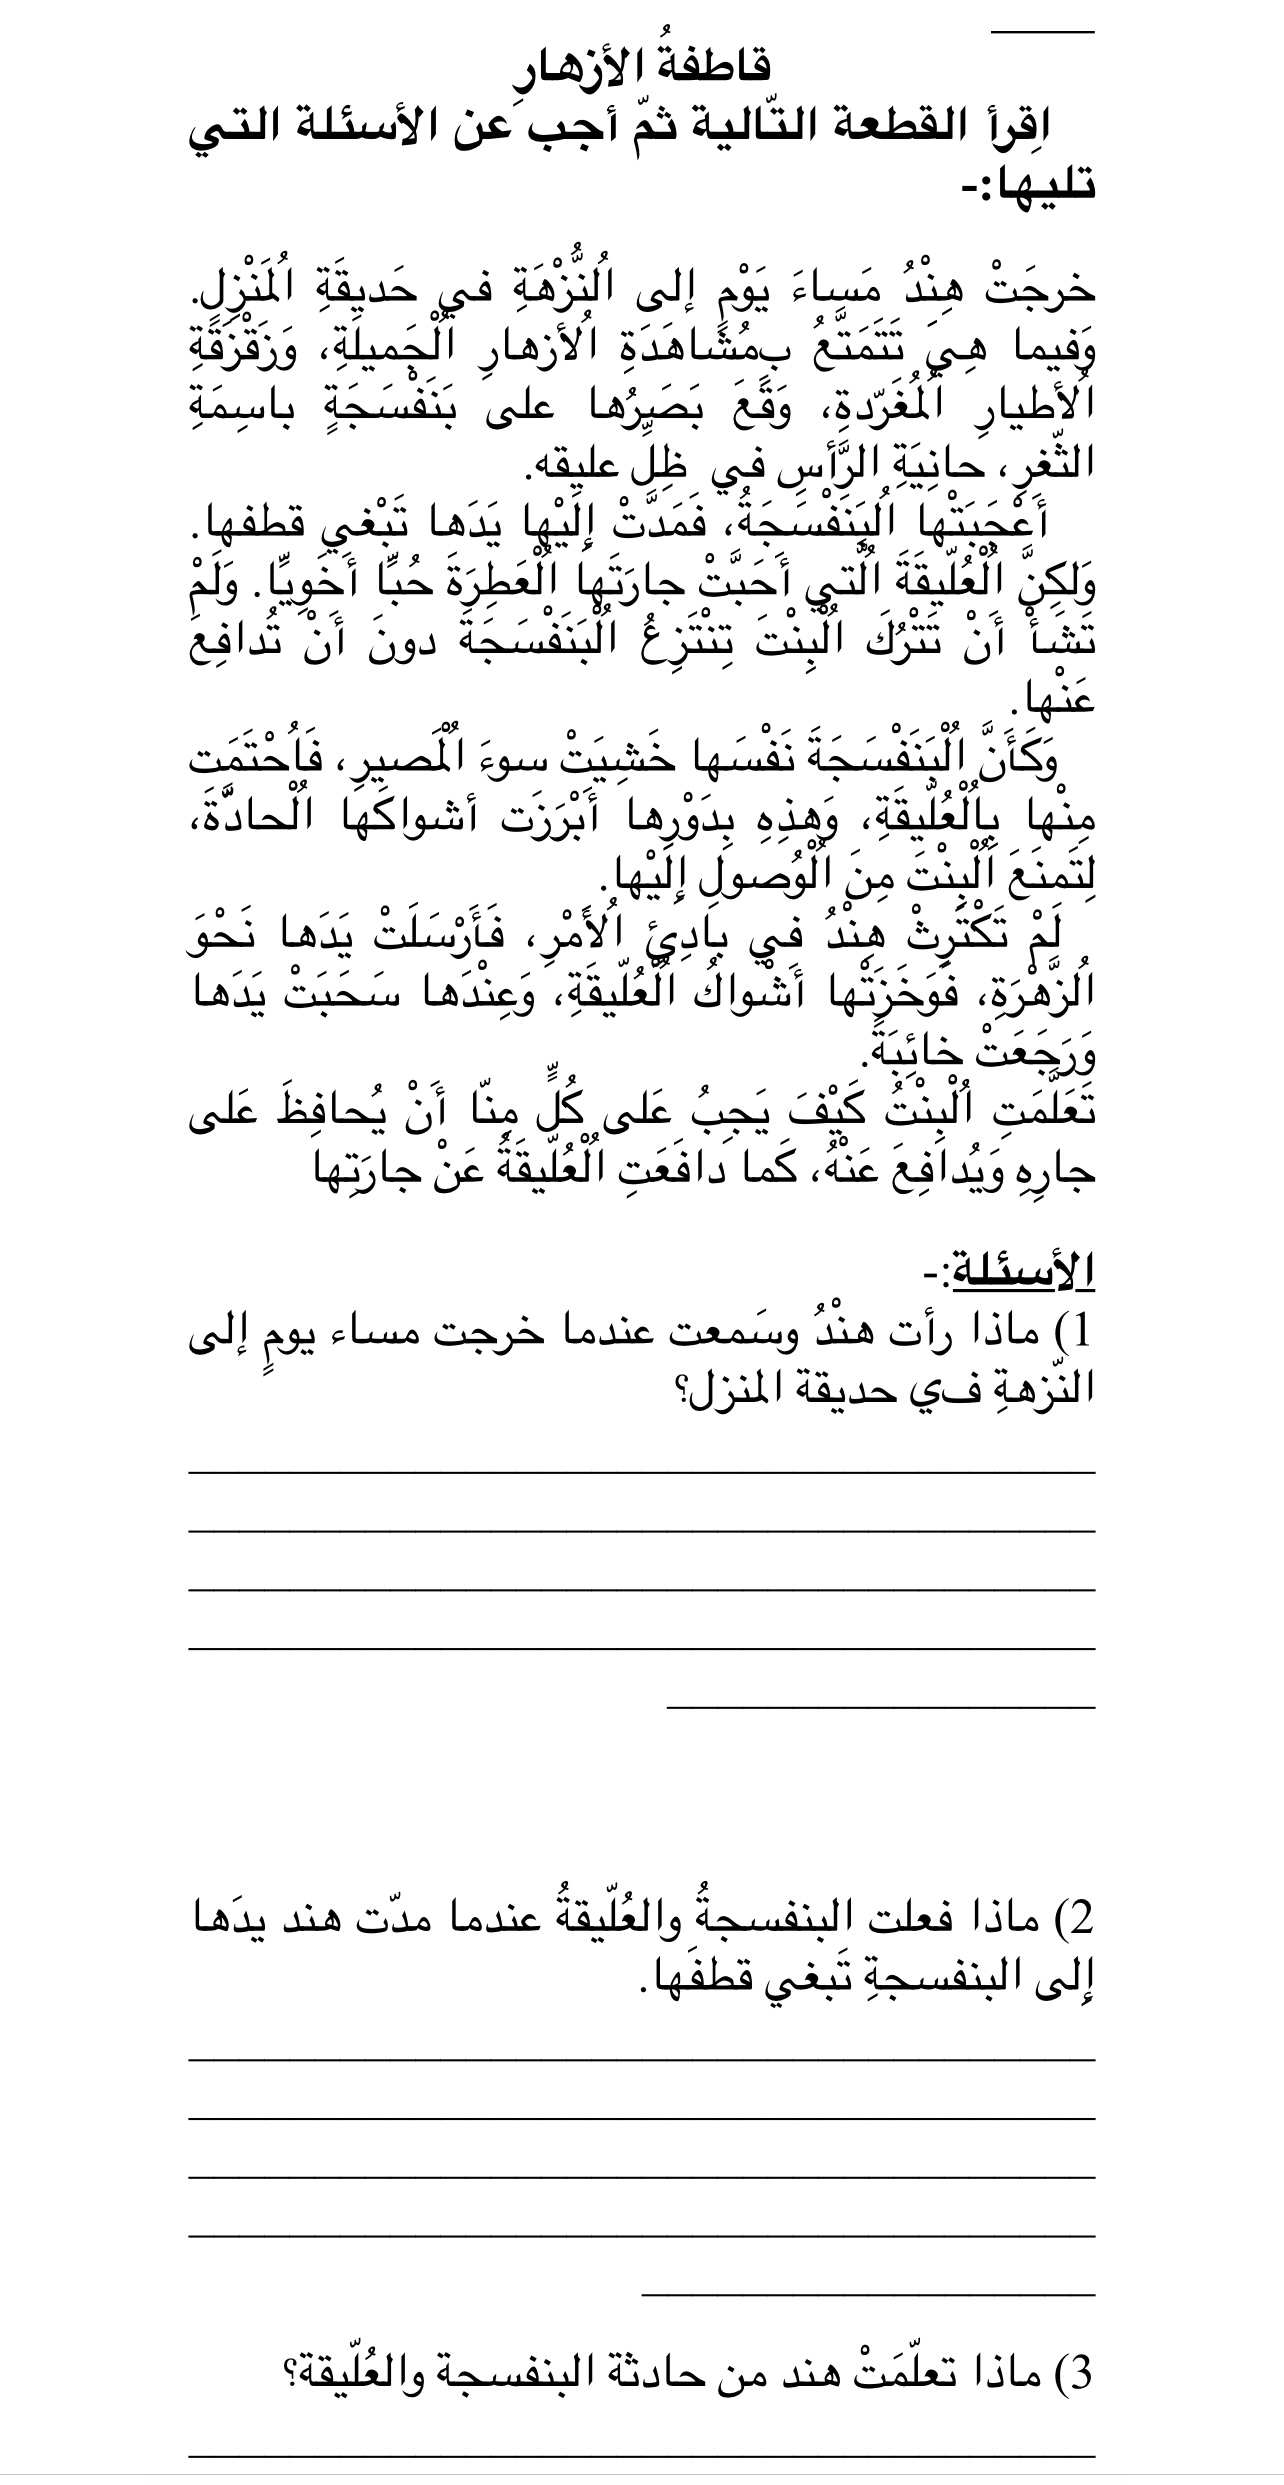 قاطفةُ الأزهارِ
اِقرأ القطعة التّالية ثمّ أجب عن الأسئلة التي
تليها:-
خرجَتْ هِنْدُ مَساءَ يَوْمٍ إلى اُلنُّزْهَةِ في حَديقَةِ اُلمَنْزِلِ.
وَفيما هِيَ تَتَمَتَّعُ بِمُشاهَدَةِ اُلأزهارِ اُلْجَميلَةِ، وَزَقْزَقَةِ
اُلأطيارِ اُلمُغَرّدةِ، وَقَعَ بَصَرُها على بَنَفْسَجَةٍ باسِمَةِ
الثّغرِ، حانِيَةِ الرَّأسِ في ظِلِّ عليقه.
أَعْجَبَتْها اُلبَنَفْسَجَةُ، فَمَدَّتْ إِلَيْها يَدَها تَبْغي قطفها.
وَلكِنَّ اُلْعُلّيقَةَ اُلَّتي أَحَبَّتْ جارَتَها اُلْعَطِرَةَ حُبًّا أَخَوِيًّا. وَلَمْ
تَشأْ أَنْ تَتْرُكَ اُلْبِنْتَ تِنْتَزِعُ اُلْبَنَفْسَجَةَ دونَ أَنْ تُدافِعَ
عَنْها.
وَكَأَنَّ اُلْبَنَفْسَجَةَ نَفْسَها خَشِيَتْ سوءَ اُلْمَصيرِ، فَاُحْتَمَت
مِنْها بِاُلْعُلّيقَةِ، وَهذِهِ بِدَوْرِها أَبْرَزَت أشواكَها اُلْحادَّةَ،
لِتَمنَعَ اُلْبِنْتَ مِنَ اُلْوُصولِ إِلَيْها.
لَمْ تَكْتَرِثْ هِنْدُ في بادِئِ اُلأَمْرِ، فَأَرْسَلَتْ يَدَها نَحْوَ
اُلزَّهْرَةِ، فَوَخَزَتْها أَشْواكُ اُلْعُلّيقَةِ، وَعِنْدَها سَحَبَتْ يَدَها
وَرَجَعَتْ خائِبَةً.
تَعَلَّمَتِ اُلْبِنْتُ كَيْفَ يَجِبُ عَلى كُلٍّ مِنّا أَنْ يُحافِظَ عَلى
جارِهِ وَيُدافِعَ عَنْهُ، كَما دافَعَتِ اُلْعُلّيقَةُ عَنْ جارَتِها
الأسئلة:-
1) ماذا رأت هنْدُ وسَمعت عندما خرجت مساء يومٍ إلى
النّزهةِ في حديقة المنزل؟
2) ماذا فعلت البنفسجةُ والعُلّيقةُ عندما مدّت هند يدَها
إلى البنفسجةِ تَبغي قطفَها.
3) ماذا تعلّمَتْ هند من حادثة البنفسجة والعُلّيقة؟